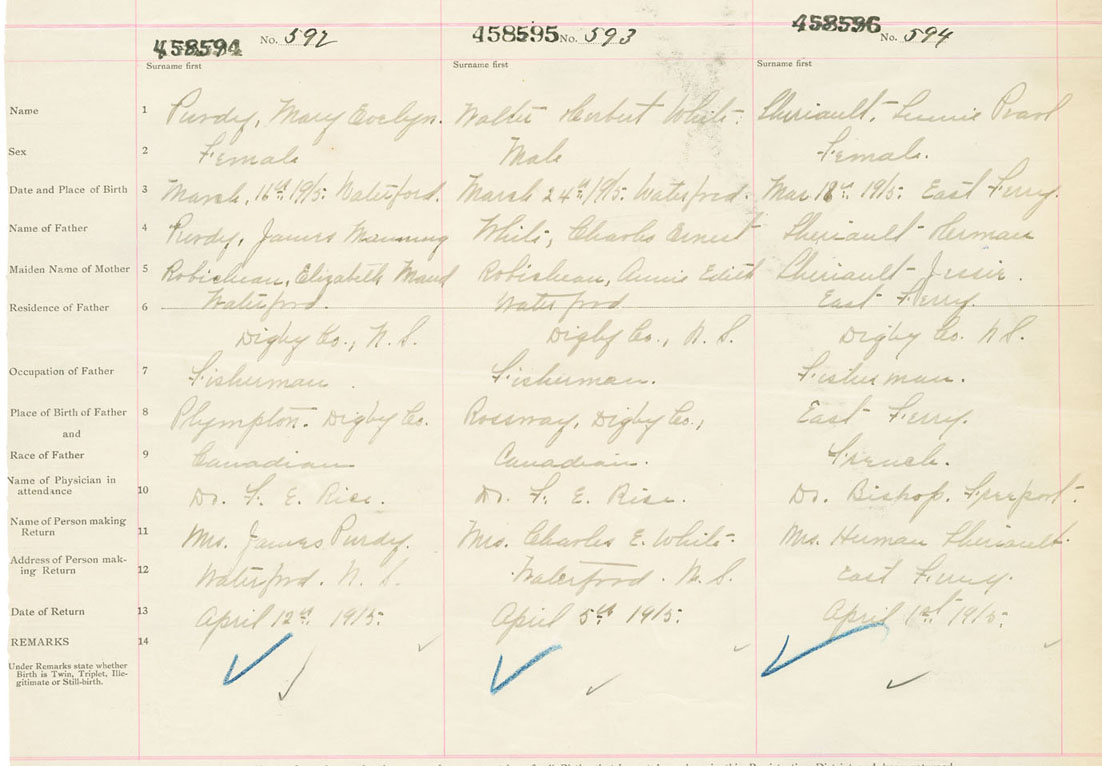 458594 No. 592 458595 No. 593 458596 No. 594
Surname first Surname first Surname first
Name 1 Purdy, Mary Evelyn. Walter Herbert White. Theriault, Pearl
Sex 2 Female Male Female.
Date and Place of Birth 3 March, 1915. Waterford. March 24th, 1915. Waterford. Mar 18th 1915. East Ferry.
Name of Father 4 Purdy, James Manning White, Charles Ernest Theriault Herman
Maiden Name of Mother 5 Robicheau, Elizabeth Maud Robicheau, Annie Edith Theriault Jessie.
Residence of Father 6 Waterford. Waterford East Ferry.
Digby Co., N. S. Digby Co., N. S. Digby Co. N S.
Occupation of Father 7 Fisherman. Fisherman. Fisherman.
Place of Birth of Father 8 Plympton. Digby Co. Rossway, Digby Co., East Ferry.
and
Race of Father 9 Canadian Canadian. French.
Name of Physician in
attendance 10 Dr. F. E. Rice. Dr. F. E. Rice. Dr. Bishop. Freeport.
Name of Person making
Return 11 Mrs. James Purdy. Mrs. Charles E. White. Mrs. Herman Theriault.
Address of Person mak-
ing Return 12 Waterford. N. S. Waterford. N. S. East Ferry.
Date of Return 13 April 12th. 1915. April 5th 1915. April 1st 1915.
REMARKS 14
Under Remarks state whether
Birth is Twin, Triplet, Ille-
gitimate or Still-birth.